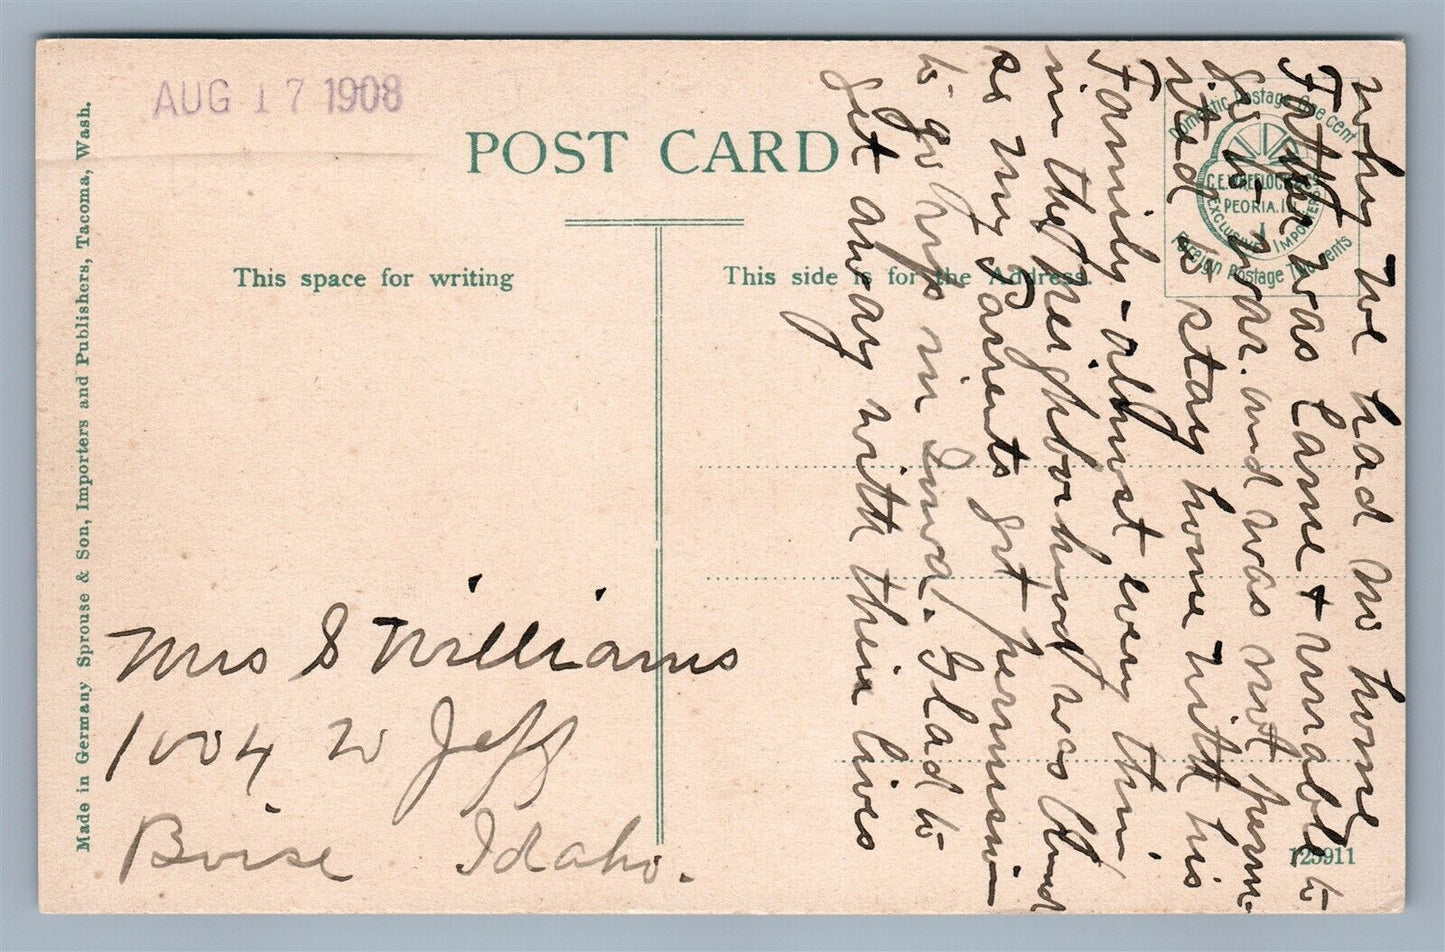 AUG 17 1908
POST CARD
This space for writing
This side is for the Address.
Domestic Postage One cent
C.E. WHEELOCK & CO
PEORIA. ILL
EXCLUSIVE IMPORTERS
Foreign Postage Two cents
Made in Germany Sprouse & Son, Importers and Publishers, Tacoma, Wash.
Mrs S Williams
1004 W Jeff
Boise Idaho.
why we had no home
Father was Lame & unable to
go to war. and was not perm-
ited to stay home with his
Family - almost every thin
in the neighborhood was
as my Parents got permission
to go hyo in Iowa. Glad to
get away with their lives
123911